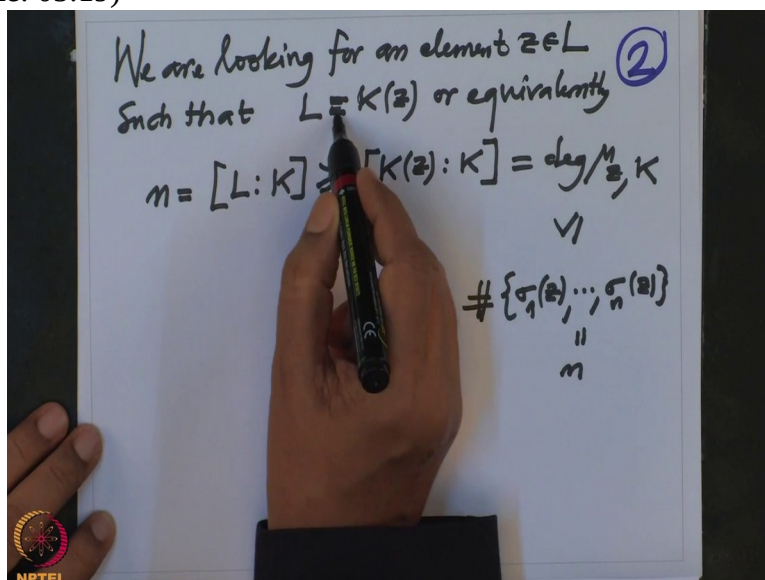 We are looking for an element z∈L
such that L = K(z) or equivalently
②
n = [L:K] ≥ [K(z):K] = deg μ_z,K
≥
# {σ₁(z), ..., σₙ(z)}
=
n
CE
NPTEL